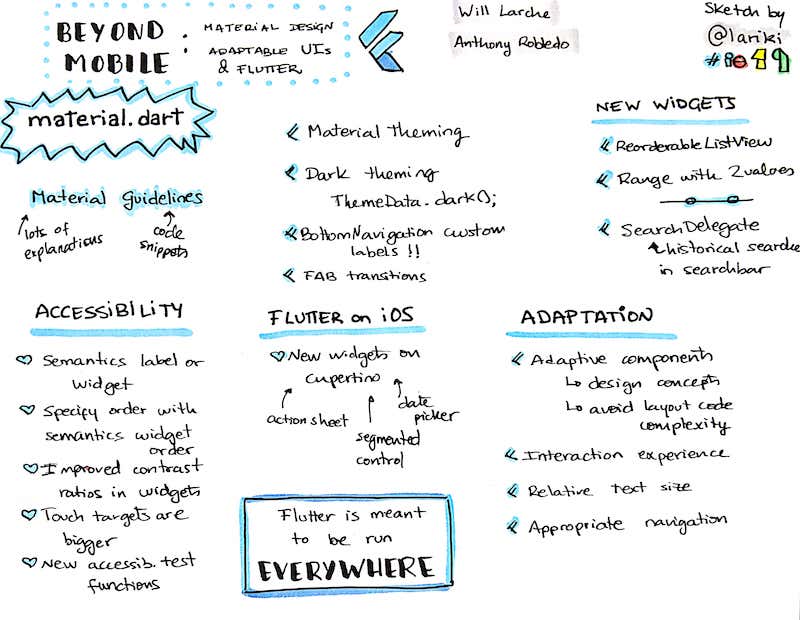 BEYOND MOBILE :
MATERIAL DESIGN
ADAPTABLE UIs
& FLUTTER
Will Larche
Anthony Robledo
Sketch by
@lariki
#io19
material.dart
Material Guidelines
lots of
explanations
code
snippets
Material theming
Dark theming
ThemeData.dark();
BottomNavigation custom
labels !!
FAB transitions
NEW WIDGETS
ReorderableListView
Range with 2 values
SearchDelegate
historical searche
in searchbar
ACCESSIBILITY
Semantics label or
widget
Specify order with
semantics widget
order
Improved contrast
ratios in widgets
Touch targets are
bigger
New accessib. test
functions
FLUTTER on iOS
New widgets on
Cupertino
action sheet
segmented
control
date
picker
Flutter is meant
to be run
EVERYWHERE
ADAPTATION
Adaptive components
design concepts
avoid layout code
complexity
Interaction experience
Relative text size
Appropriate navigation